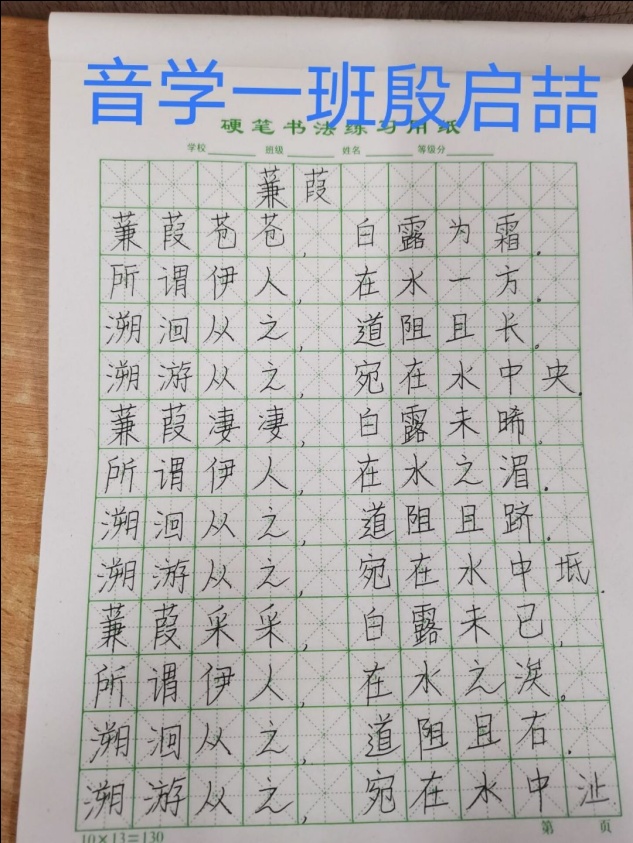 音学一班殷启喆
硬笔书法练习用纸
学校 班级 姓名 等级分
蒹葭
蒹葭苍苍,白露为霜.
所谓伊人,在水一方.
溯洄从之,道阻且长.
溯游从之,宛在水中央.
蒹葭凄凄,白露未晞.
所谓伊人,在水之湄.
溯洄从之,道阻且跻.
溯游从之,宛在水中坻.
蒹葭采采,白露未已,
所谓伊人,在水之涘。
溯洄从之,道阻且右.
溯游从之,宛在水中沚
10×13=130 第 页